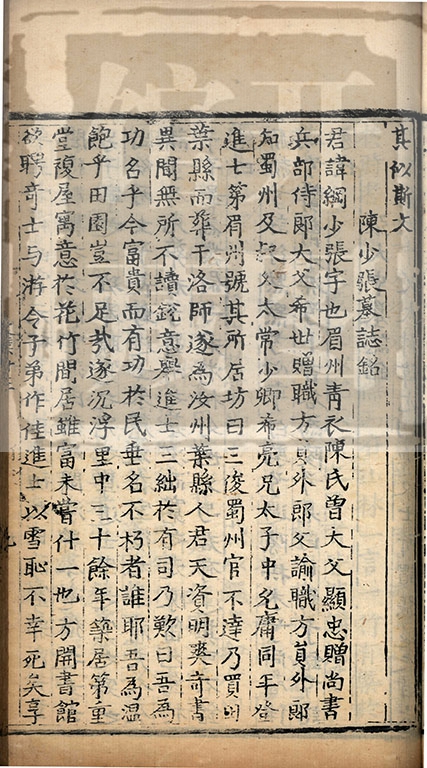 其似斯文
陳少張墓誌銘
君諱綱少張字也眉州青衣陳氏曾大父顯忠贈尚書
兵部侍郎大父希世贈職方員外郎父諭職方員外郎
知蜀州及叔父太常少卿希亮兄太子中允庸同年登
進士第眉州號其所居坊曰三俊蜀州官不達乃買田
葉縣而葬于洛師遂為汝州葉縣人君天資明爽奇書
異聞無所不讀銳意舉進士三絀於有司乃歎曰吾為
功名乎今富貴而有功於民垂名不朽者誰耶吾為溫
飽乎田園豈不足哉遂沉浮里中三十餘年築居第重
堂複屋寓意於花竹間居雖富未嘗什一也方開書館
欲聘奇士与游令子弟作佳進士以雪恥不幸死矣享